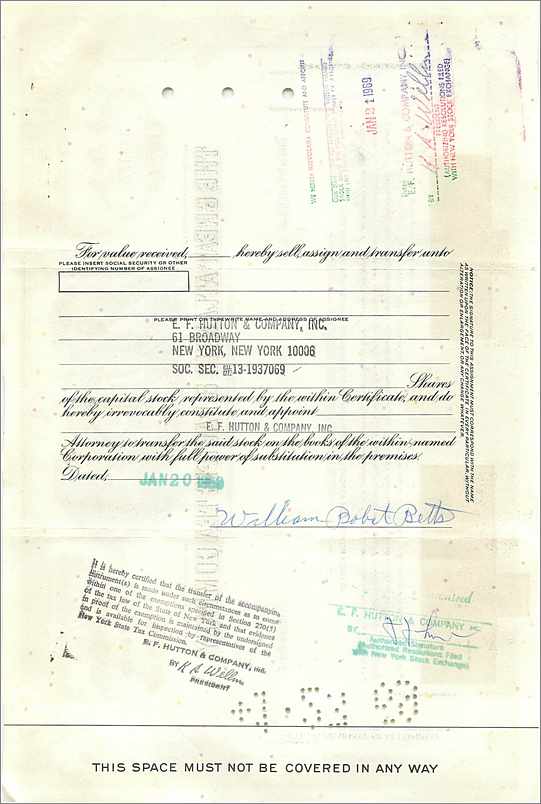 JAN 21 1969
E. F. HUTTON & COMPANY, INC.
PRESIDENT
AUTHORIZING RESOLUTIONS FILED
WITH NEW YORK STOCK EXCHANGE
For value received, hereby sell, assign and transfer unto
PLEASE INSERT SOCIAL SECURITY OR OTHER
IDENTIFYING NUMBER OF ASSIGNEE
NOTICE: THE SIGNATURE TO THIS ASSIGNMENT MUST CORRESPOND WITH THE NAME
AS WRITTEN UPON THE FACE OF THE CERTIFICATE IN EVERY PARTICULAR, WITHOUT
ALTERATION OR ENLARGEMENT OR ANY CHANGE WHATEVER.
PLEASE PRINT OR TYPEWRITE NAME AND ADDRESS OF ASSIGNEE
E. F. HUTTON & COMPANY, INC.
61 BROADWAY
NEW YORK, NEW YORK 10006
SOC. SEC. 13-1937069
Shares
of the capital stock represented by the within Certificate, and do
hereby irrevocably constitute and appoint
E. F. HUTTON & COMPANY, INC.
Attorney to transfer the said stock on the books of the within named
Corporation with full power of substitution in the premises.
Dated, JAN 20 1969
William Bobst Betts
It is hereby certified that the transfer of the accompanying
instrument(s) is made under such circumstances as to come
within one of the exemptions specified in Section 270(5)
of the tax law of the State of New York and that evidence
in proof of the exemption is maintained by the undersigned
and is available for inspection by representatives of the
New York State Tax Commission.
E. F. HUTTON & COMPANY, INC.
BY
PRESIDENT
E. F. HUTTON & COMPANY INC.
BY
Authorized Signature
Authorized Resolutions Filed
with New York Stock Exchange
THIS SPACE MUST NOT BE COVERED IN ANY WAY